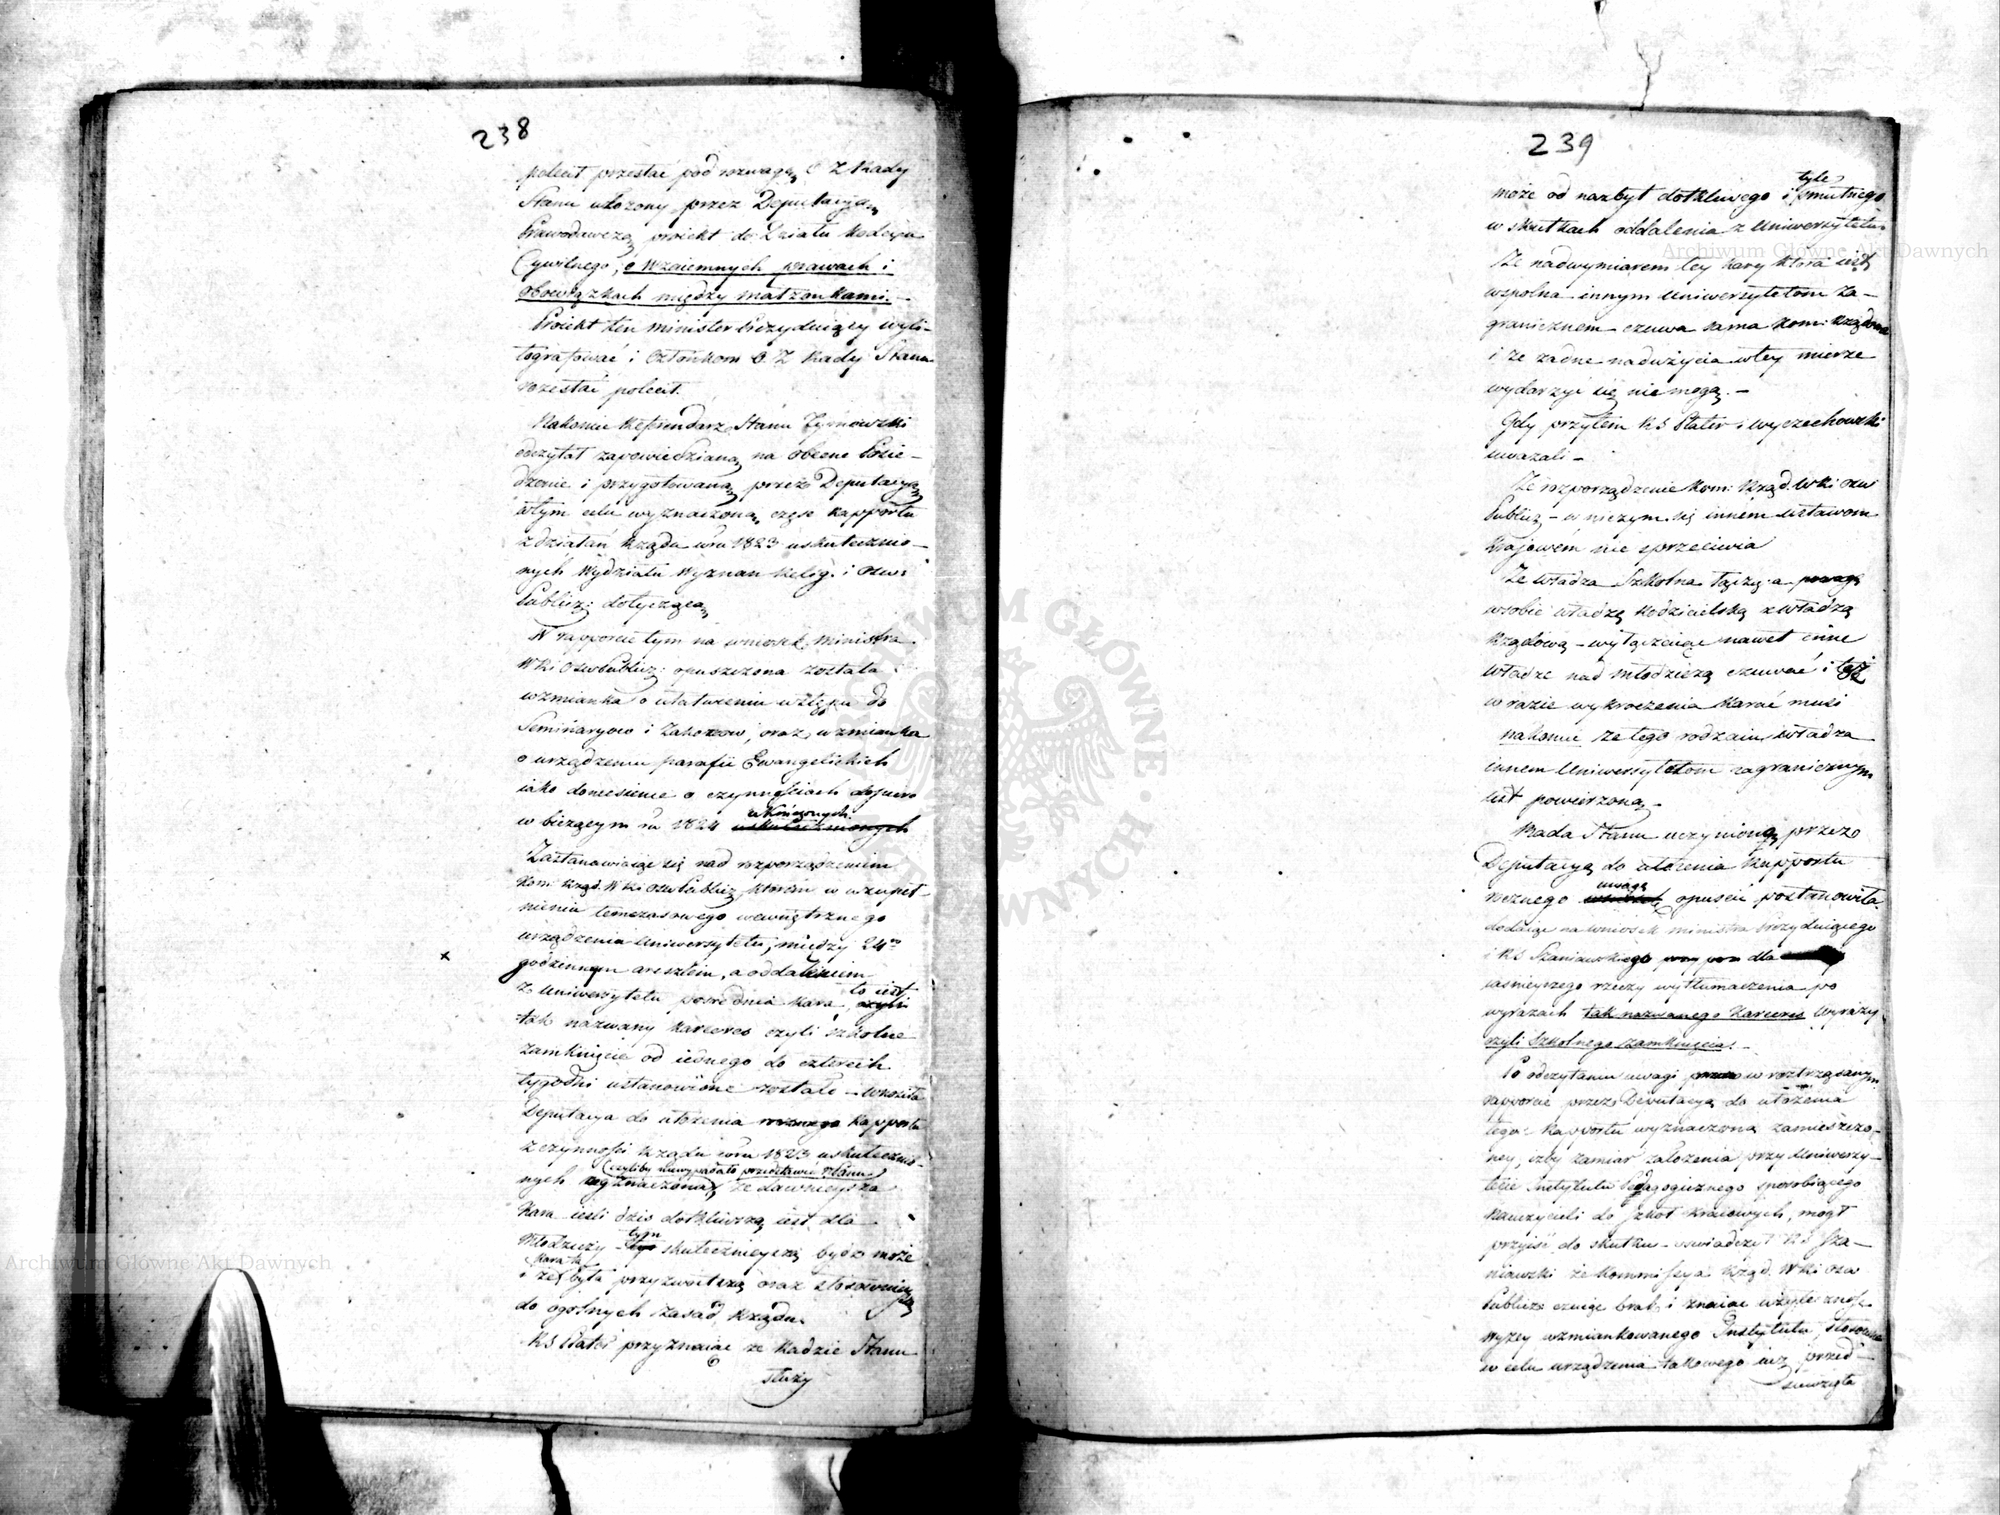 238
polecił przesłać pod rozwagę O. Z. Rady
Stanu ułożony przez Deputacyą
Prawodawczą proiekt do Działu Kodexu
Cywilnego, o wzaiemnych prawach i
obowiązkach między małżonkami. –
Proiekt ten Minister Prezyduiący wyli-
tografować i Członkom O. Z. Rady Stanu
rozesłać polecił.
Nakoniec Referendarz Stanu Tymowski
odczytał zapowiedzianą na obecne Posie-
dzenie i przygotowaną przez Deputacyą
w tym celu wyznaczoną, część Rapportu
z działań Rządu w ru 1823 uskutecznio-
nych Wydziału Wyznań Relig. i Ośw:
Publicz: dotyczącą
W rapporcie tym na wniosek Ministra
W Ri Ośw Publicz: opuszczona została
wzmianka o ułatwieniu wstępu do
Seminaryów i Zakonów, oraz wzmianka
o urządzeniu parafii Ewangelickich
iako doniesienie o czynnościach dopiero
w bieżącym ru 1824 ukończonych
uskutecznionych
Zastanawiaiąc się nad rozporządzeniem
Kom: Rząd. W Ri Ośw Publicz, którem w uzupeł-
nieniu tymczasowego wewnętrznego
urządzenia Uniwersytetu, między 24ro
godzinnym aresztem, a oddaleniem
z Uniwersytetu pośrednia kara, to iest czyli
tak nazwany karceres czyli szkolne
zamknięcie od iednego do czterech
tygodni ustanowione zostało – wnosiła
Deputacya do ułożenia rocznego Rapportu
z czynności Rządu w ru 1823 uskutecznio-
(czyliby niewypadało przedstawić N Panu)
nych wyznaczona, że dawnieysza
kara ieśli dziś dotkliwszą iest dla
Młodzieży tym skutecznieyszą bydź może
i że kara ta była przyzwoitszą oraz stosownieyszą
do ogólnych zasad Rządu.
R S Plater przyznaiąc że Radzie Stanu
służy
239
tyle
może od nazbyt dotkliwego i smutnego
w skutkach oddalenia z Uniwersytetu
Że nadwymiarem tey kary która iest
wspólna innym Uniwersytetom Za-
granicznem czuwa sama Kom: Rządowa
i że żadne nadużycia w tey mierze
wydarzyć się nie mogą. –
Gdy przytem R S Plater i Wyczechowski
uważali –
Że rozporządzenie Kom: Rząd. W Ri Ośw
Publicz – w niczym się innem ustawom
Kraiowem nie sprzeciwia
Że władza Szkolna łącząca powagę
w sobie władzę Rodzicielską z władzą
Rządową – wyłączaiąc nawet inne
władze nad młodzieżą czuwać i tęż
w razie wykroczenia karać musi
nakoniec że tego rodzaiu władza
innem Uniwersytetom zagranicznym
iest powierzoną –
Rada Stanu uczynioną przez
Deputacyą do ułożenia Rapportu
rocznego uwagę opuścić postanowiła
dodaiąc na wniosek Ministra Prezyduiącego
i R S Szaniawskiego dla
iaśnieyszego rzeczy wytłumaczenia po
wyrazach tak nazwanego Karceris wyrazy
czyli Szkolnego zamknięcia. –
Po odczytaniu uwagi w roztrząsanym
rapporcie przez Deputacyą do ułożenia
tego Rapportu wyznaczoną zamieszczo-
ney, iżby zamiar założenia przy Uniwersy-
tecie Instytutu Pedagogicznego sposobiącego
nauczycieli do szkół kraiowych, mógł
przyiść do skutku – oświadczył R S Sza-
niawski że Kommissya Rząd. W Ri Ośw
Publicz czuiąc brak i znaiąc użyteczność
wyżey wzmiankowanego Instytutu, stosowne
w celu urządzenia takowego iuż przed-
sięwzięła
Archiwum Główne Akt Dawnych
Archiwum Główne Akt Dawnych
ARCHIWUM GŁÓWNE AKT DAWNYCH